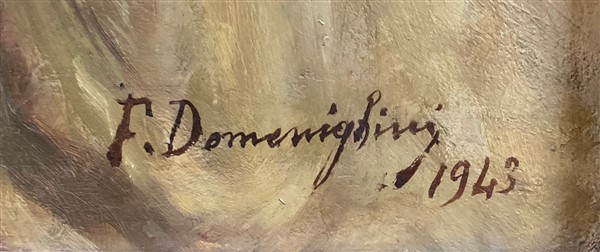 F. Domenighini
1943